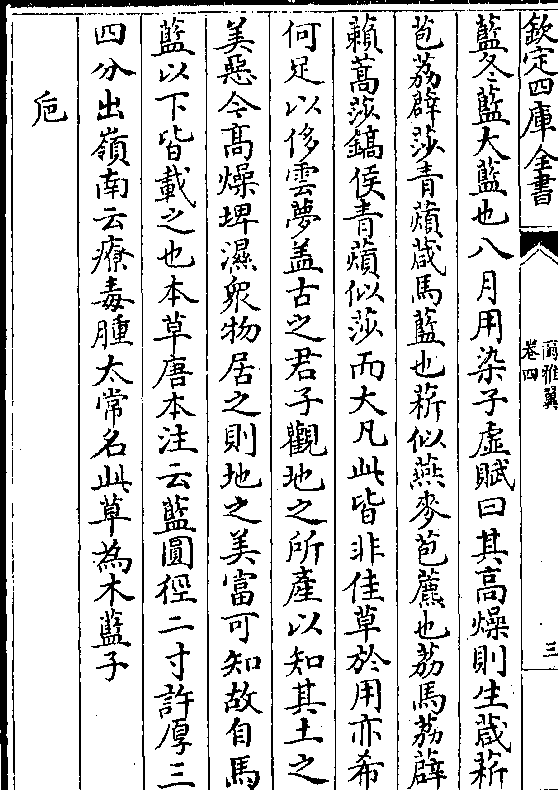 欽定四庫全書
爾雅翼
卷四
三
藍冬藍大藍也八月用染子虛賦曰其高燥則生葴菥
苞荔薜莎青薠葴馬藍也菥似燕麥苞藨也荔馬荔薜
藾蒿莎鎬侯青薠似莎而大凡此皆非佳草於用亦希
何足以侈雲夢盖古之君子觀地之所產以知其土之
美惡令高燥埤濕衆物居之則地之美富可知故自馬
藍以下皆載之也本草唐本注云藍圓徑二寸許厚三
四分出嶺南云療毒腫太常名此草為木藍子
巵